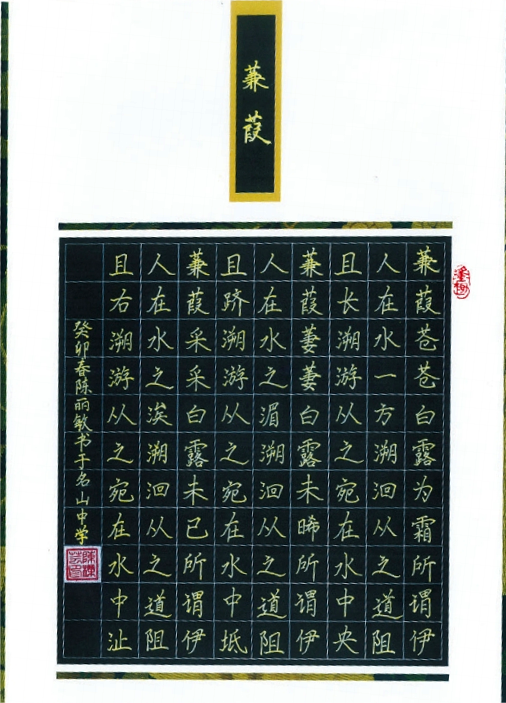 蒹葭
蒹葭苍苍白露为霜所谓伊
人在水一方溯洄从之道阻
且长溯游从之宛在水中央
蒹葭萋萋白露未晞所谓伊
人在水之湄溯洄从之道阻
且跻溯游从之宛在水中坻
蒹葭采采白露未已所谓伊
人在水之涘溯洄从之道阻
且右溯游从之宛在水中沚
癸卯春陈丽敏书于名山中学